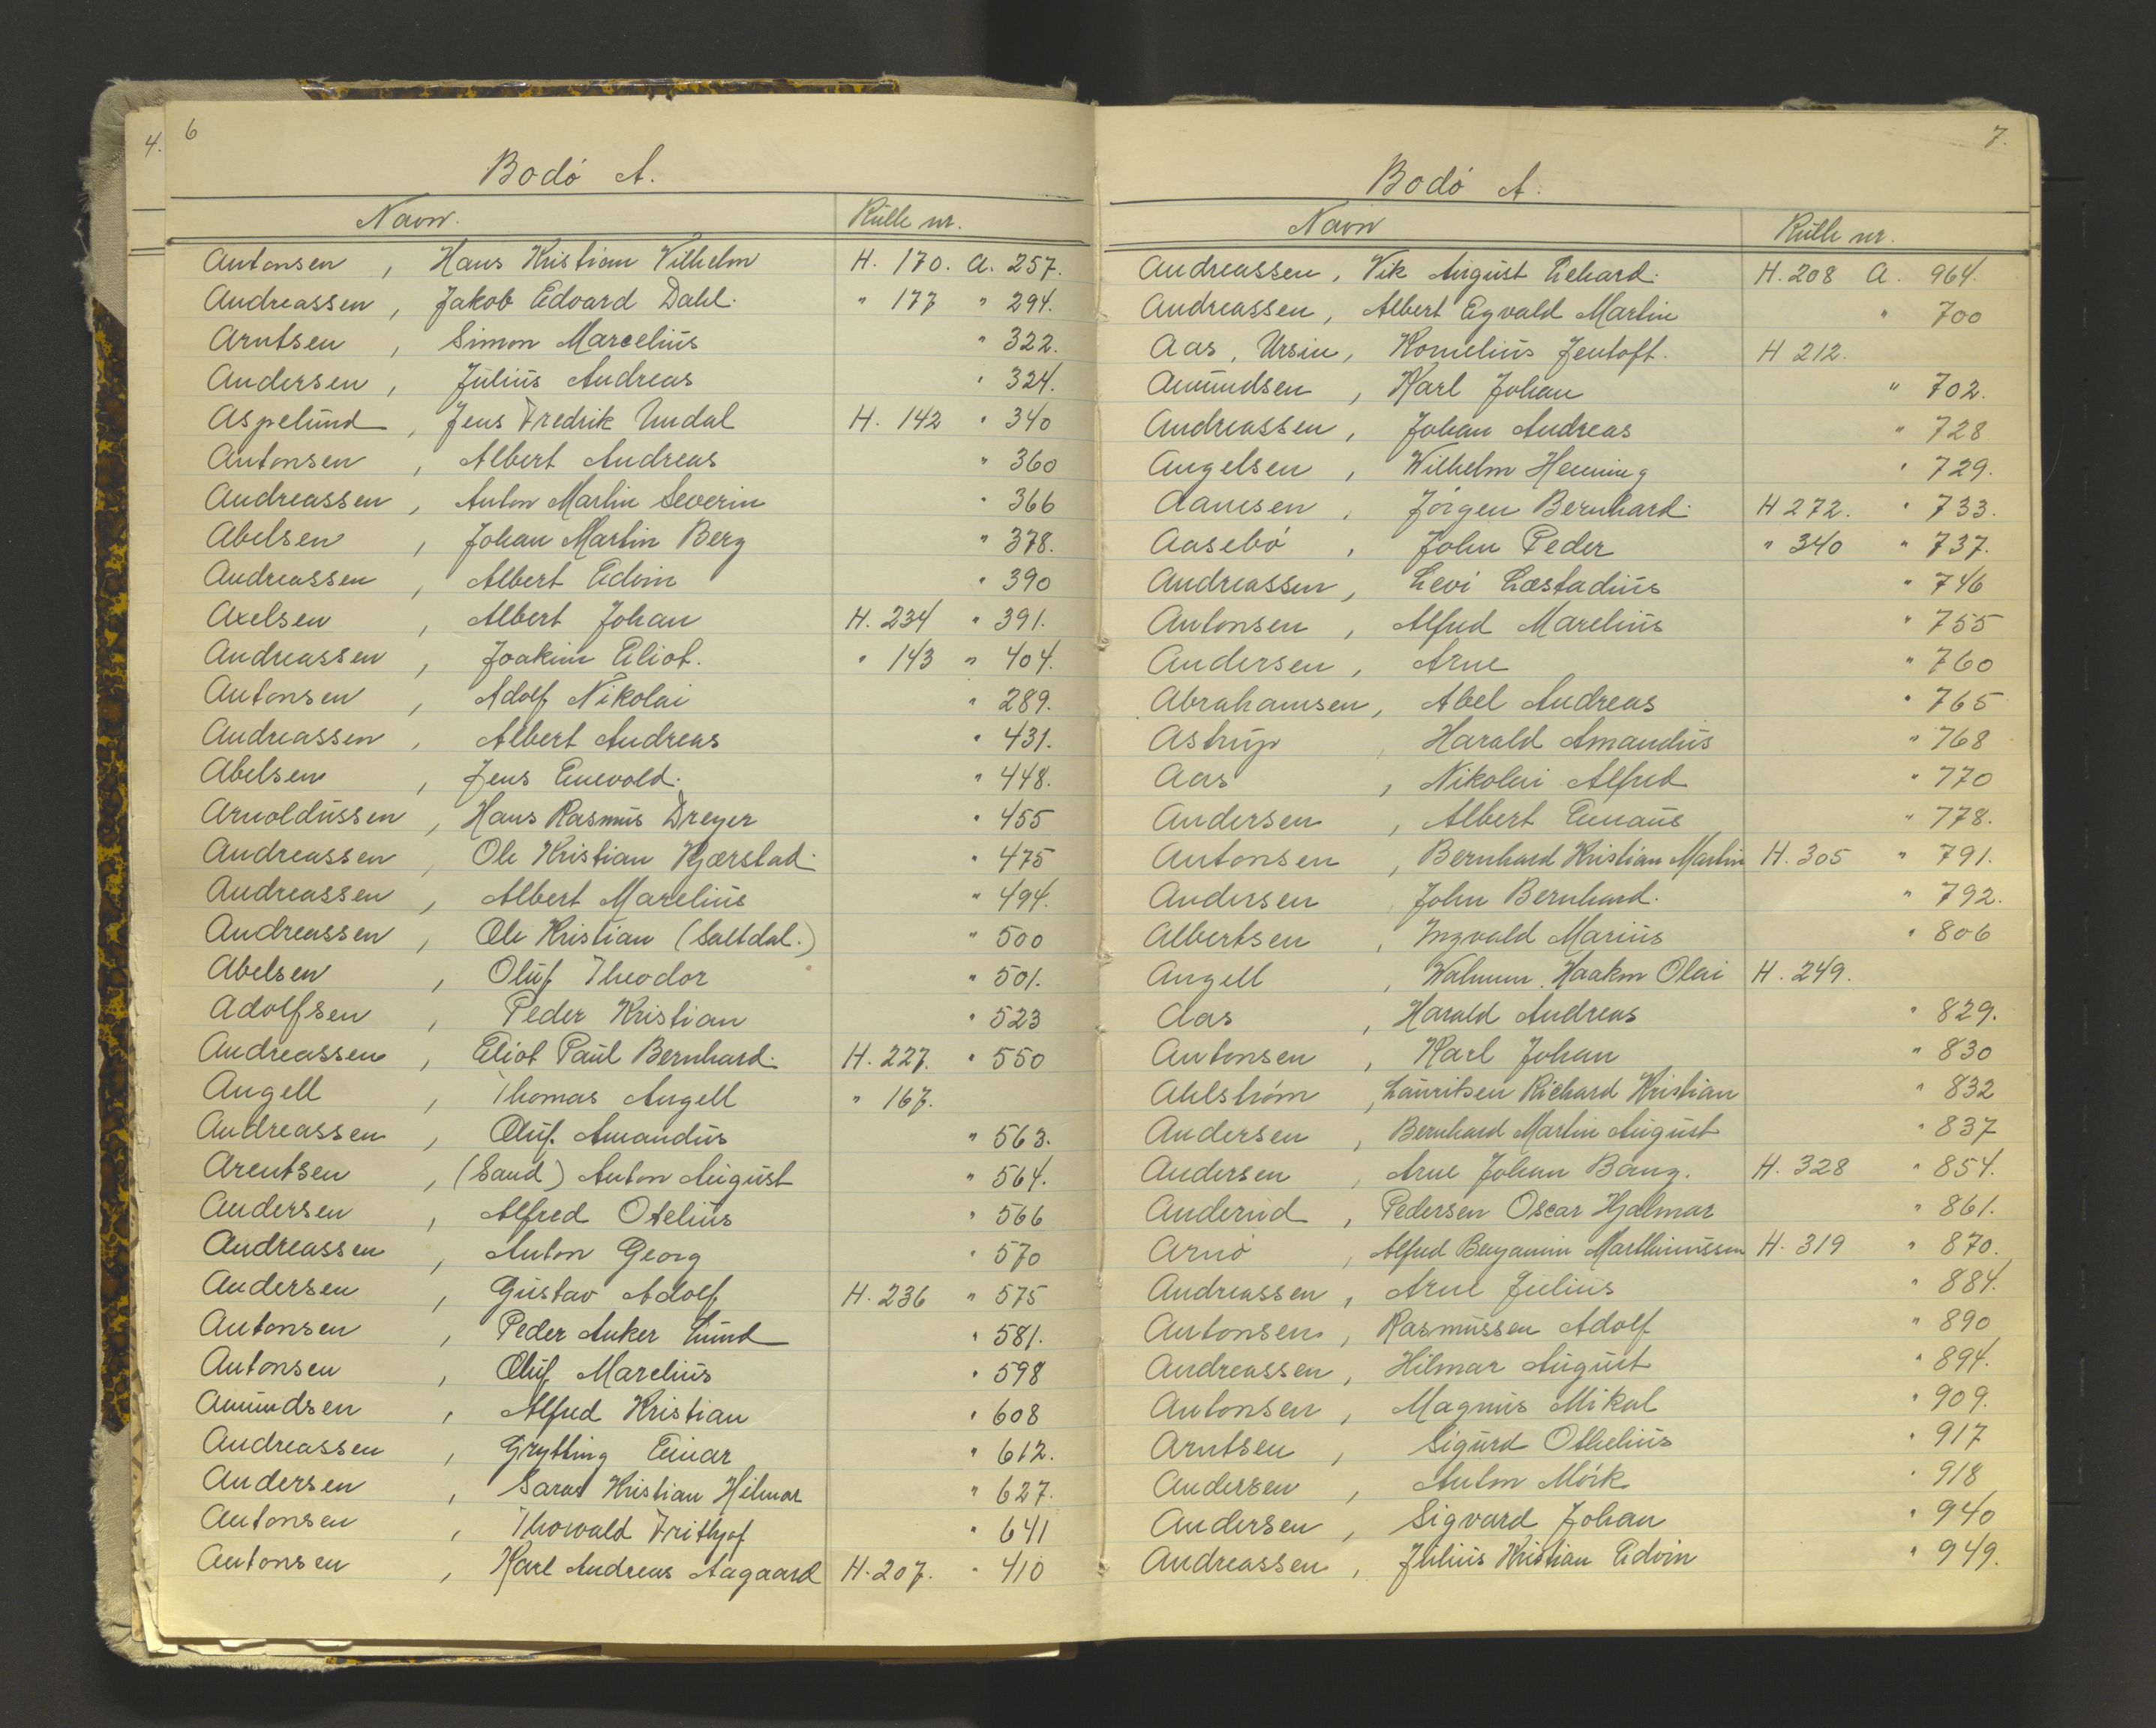 4.
6
Bodó A.
Navn. Rulle nr.
Antonsen, Hans Kristian Vilhelm H. 170. A. 257.
Andreassen, Jakob Edvard Dahl. " 177 " 294.
Arntsen, Simon Marcelius " 322.
Andersen, Julius Andreas " 324.
Aspelund, Jens Fredrik Undal H. 142 " 340
Antonsen, Albert Andreas " 360
Andreassen, Anton Martin Severin " 366
Abelsen, Johan Martin Berg " 378.
Andreassen, Albert Edvin " 390
Axelsen, Albert Johan H. 234 " 391.
Andreassen, Joakim Eliot. " 143 " 404.
Antonsen, Adolf Nikolai " 289.
Andreassen, Albert Andreas " 431.
Abelsen, Jens Enevold. " 448.
Arnoldussen, Hans Rasmus Dreyer " 455
Andreassen, Ole Kristian Kjærstad. " 475
Andreassen, Albert Marelius " 494.
Andreassen, Ole Kristian (Saltdal.) " 500
Abelsen, Oluf Theodor " 501.
Adolfsen, Peder Kristian " 523
Andreassen, Eliot Paul Bernhard. H. 227. " 550
Angell, Thomas Angell " 167.
Andreassen, Oluf. Amandus " 563.
Arentsen, (Sand) Anton August " 564.
Andersen, Alfred Otelius " 566
Andreassen, Anton Georg " 570
Andersen, Gustav Adolf H. 236 " 575
Antonsen, Peder Anker Lund " 581.
Antonsen, Oluf Marelius " 598
Amundsen, Alfred Kristian " 608
Andreassen, Grytting Einar " 612.
Andersen, Kristian Hilmar " 627.
Antonsen, Thorvald Frithjof " 641
Antonsen, Karl Andreas Aagaard H. 207. " 410
7.
Bodó A.
Navn Rulle nr.
Andreassen, Vik August Lehard. H. 208 A. 964.
Andreassen, Albert Egvald Martin " 700
Aas, Ursin, Kornelius Jentoft. H 212.
Amundsen, Karl Johan " 702.
Andreassen, Johan Andreas " 728
Angelsen, Wilhelm Henning " 729.
Aanesen, Jórgen Bernhard. H 272. " 733.
Aasebó, John Peder " 340 " 737.
Andreassen, Levi Læstadius " 746
Antonsen, Alfred Marelius " 755
Andersen, Arne " 760
Abrahamsen, Abel Andreas " 765
Astrup, Harald Amandus " 768
Aas, Nikolai Alfred " 770
Andersen, Albert Emaus " 778.
Antonsen, Bernhard Kristian Martin H. 305 " 791.
Andersen, John Bernhard. " 792.
Albertsen, Ingvald Marius " 806
Angell, Walnum. Haakon Olai H. 249.
Aas, Harald Andreas " 829.
Antonsen, Karl Johan " 830
Ahlstróm, Lauritsen Richard Kristian " 832
Andersen, Bernhard Martin August " 837
Andersen, Arne Johan Bang. H. 328 " 854.
Anderud, Pedersen Oscar Hjalmar " 861.
Arnó, Alfred Benjamin Marthinussen H. 319 " 870.
Andreassen, Arne Julius " 884.
Antonsen, Rasmussen Adolf " 890
Andreassen, Hilmar August " 894.
Antonsen, Magnus Mikal " 909.
Arntsen, Sigurd Othelius " 917
Andersen, Anton Mórk " 918
Andersen, Sigvard Johan " 940
Andreassen, Julius Kristian Edvin " 949.